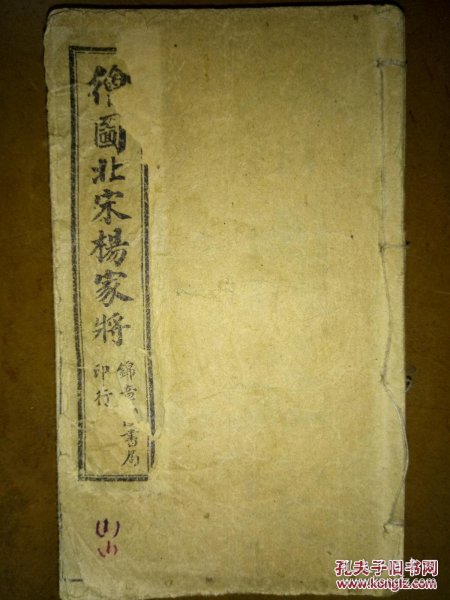 繪圖北宋楊家將
錦章書局
印行
山
孔夫子旧书网
www.kongfz.com